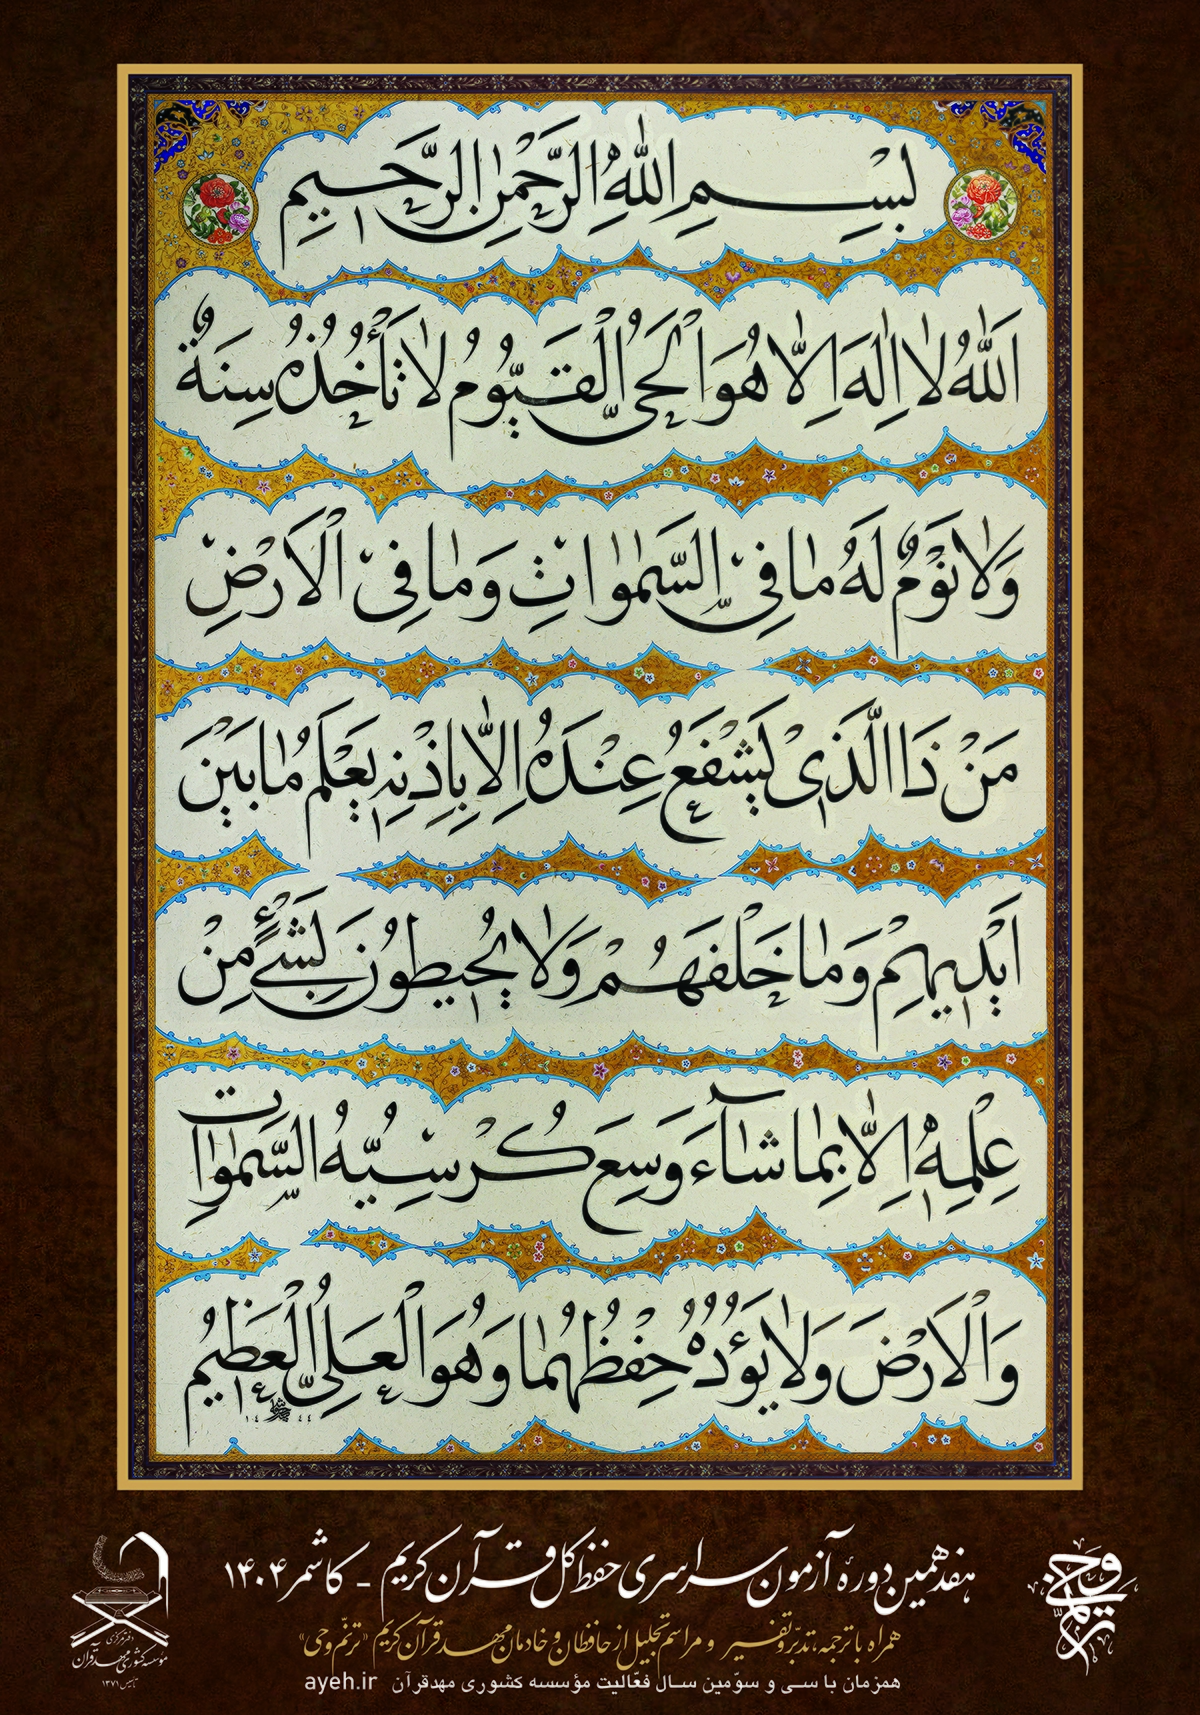 بِسْمِ اللّٰهِ الرَّحْمٰنِ الرَّحِیمِ
اَللّٰهُ لٰا اِلٰهَ اِلّٰا هُوَ الْحَیُّ الْقَیُّومُ لٰا تَأْخُذُهُ سِنَةٌ
وَلٰا نَوْمٌ لَهُ مٰا فِی السَّمٰوٰاتِ وَ مٰا فِی الْاَرْضِ
مَنْ ذَا الَّذِی یَشْفَعُ عِنْدَهُ اِلّٰا بِاِذْنِهِ یَعْلَمُ مٰا بَیْنَ
اَیْدِیهِمْ وَ مٰا خَلْفَهُمْ وَلٰا یُحِیطُونَ بِشَیْءٍ مِنْ
عِلْمِهِ اِلّٰا بِمٰا شٰاۤءَ وَسِعَ کُرْسِیُّهُ السَّمٰوٰاتِ
وَالْاَرْضَ وَلٰا یَؤُدُهُ حِفْظُهُمٰا وَهُوَ الْعَلِیُّ الْعَظِیمُ
هفدهمین دوره آزمون سراسری حفظ کل قرآن کریم - کاشمر ۱۴۰۴
همراه با ترجمه، تدبّر و تفسیر و مراسم تجلیل از حافظان و خادمان مهد قرآن کریم «ترنّم وحی»
همزمان با سی و سوّمین سال فعّالیت مؤسسه کشوری مهدقرآن ayeh.ir
ترنم وحی
دفتر مرکزی
مؤسسه کشوری مهد قرآن
تأسیس ۱۳۷۱